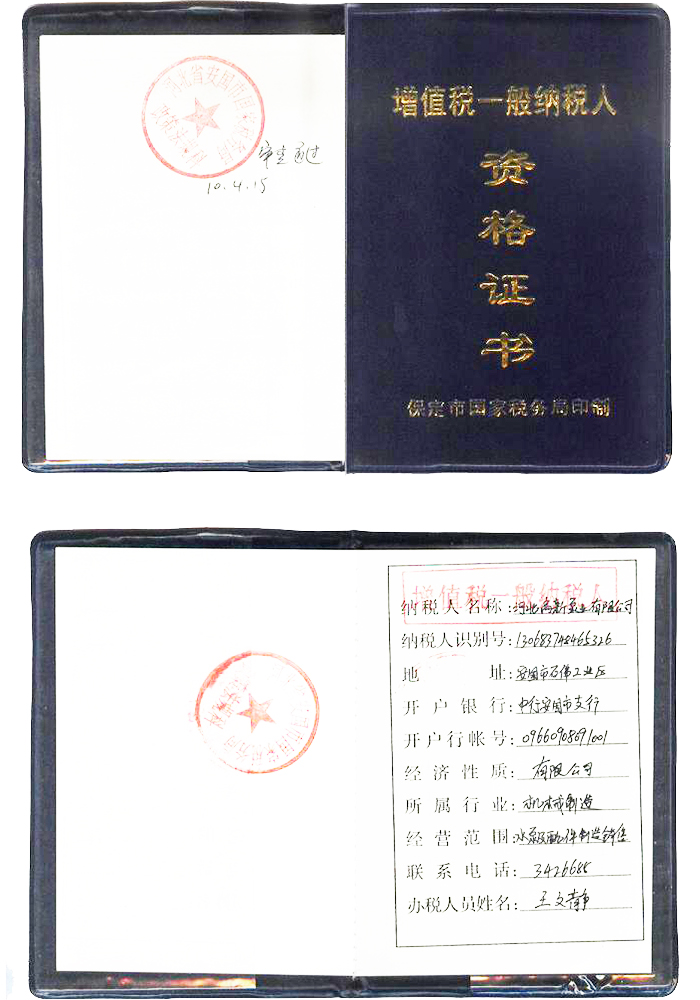 河北省安国市国家税务局
审查通过
10.4.15
增值税一般纳税人
资
格
证
书
保定市国家税务局印制
增值税一般纳税人
纳税人名称:河北高新泵业有限公司
纳税人识别号:130683748465326
地址:安国市石佛工业区
开户银行:中行安国市支行
开户行帐号:09660908091001
经济性质:有限公司
所属行业:机械制造
经营范围:水泵及配件制造销售
联系电话:3426685
办税人员姓名:王文静